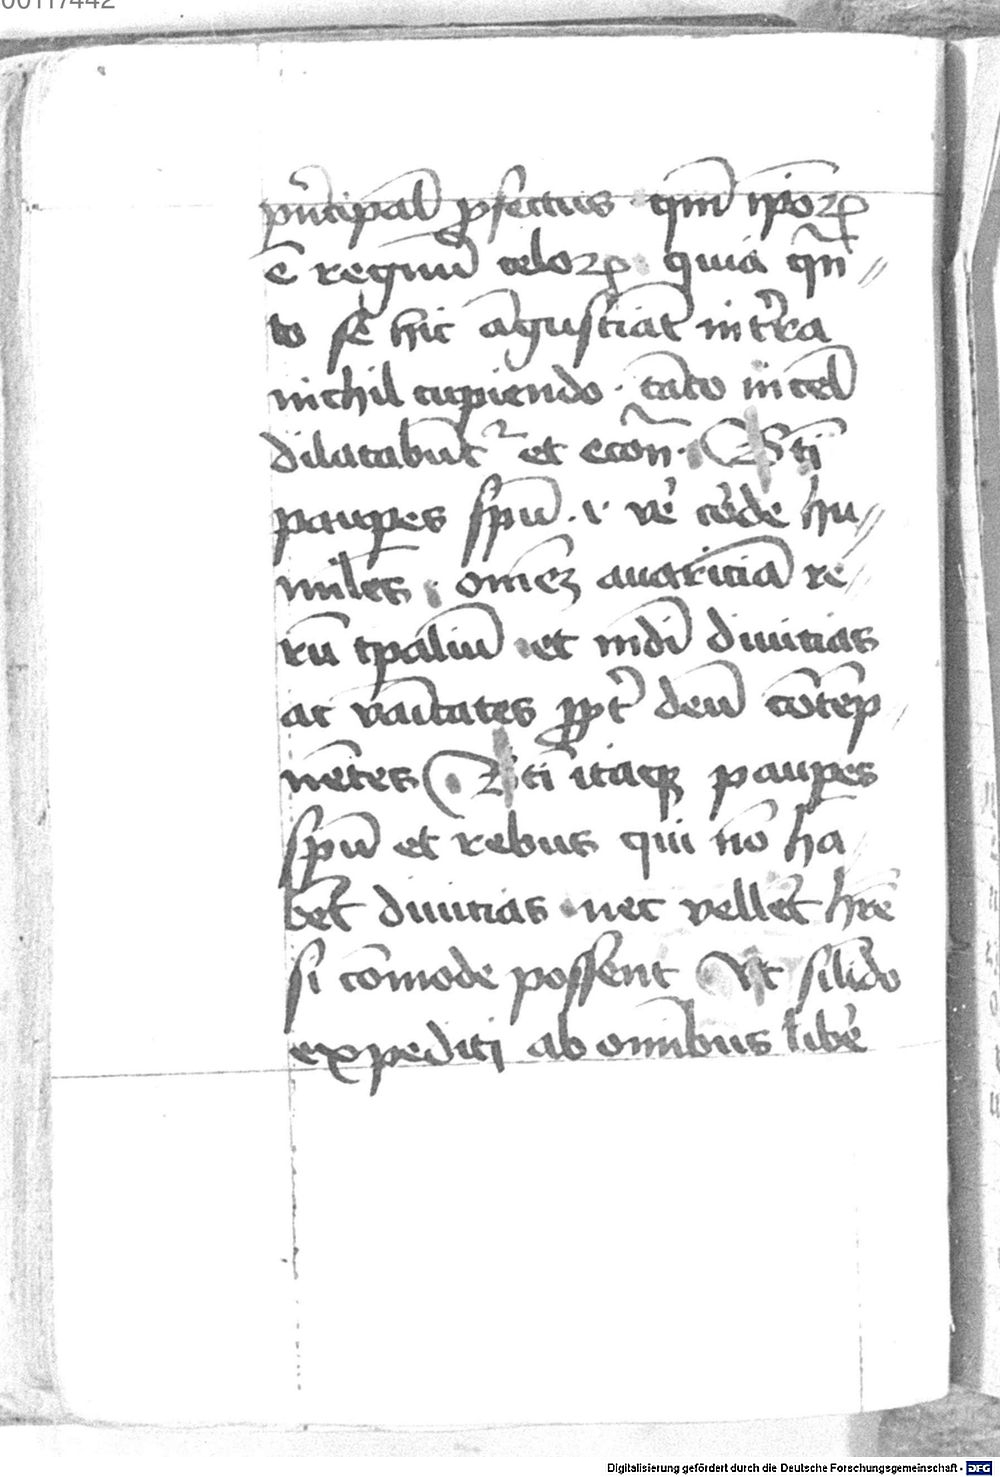 00117442
pͥncipal̄ ꝓfectus qm̄ ip̄oꝝ
ē regnū celoꝝ · quia qn̄//
to sē hic āgustiāt in tͥra
nichil cupiendo · tāto in cel̄
dilatabūtᷣ et econ̄ · Bt̄i
paupes spū · i · ve᷑ coꝛde hu//
miles · om̄eꝫ auariciā re//
rū tp̄aliū · et mūdi diuicias
ac vāitates ꝓpt᷑ deū cōtēp//
nētes Bt̄i itaqꝫ paupes
spū et rebus qui nō ha//
bēt diuicias · nec vellēt hr̄e
si cōmode possent Vt sil̄ido
expediti ab om̄ibus libe᷑
Digitalisierung gefördert durch die Deutsche Forschungsgemeinschaft - DFG